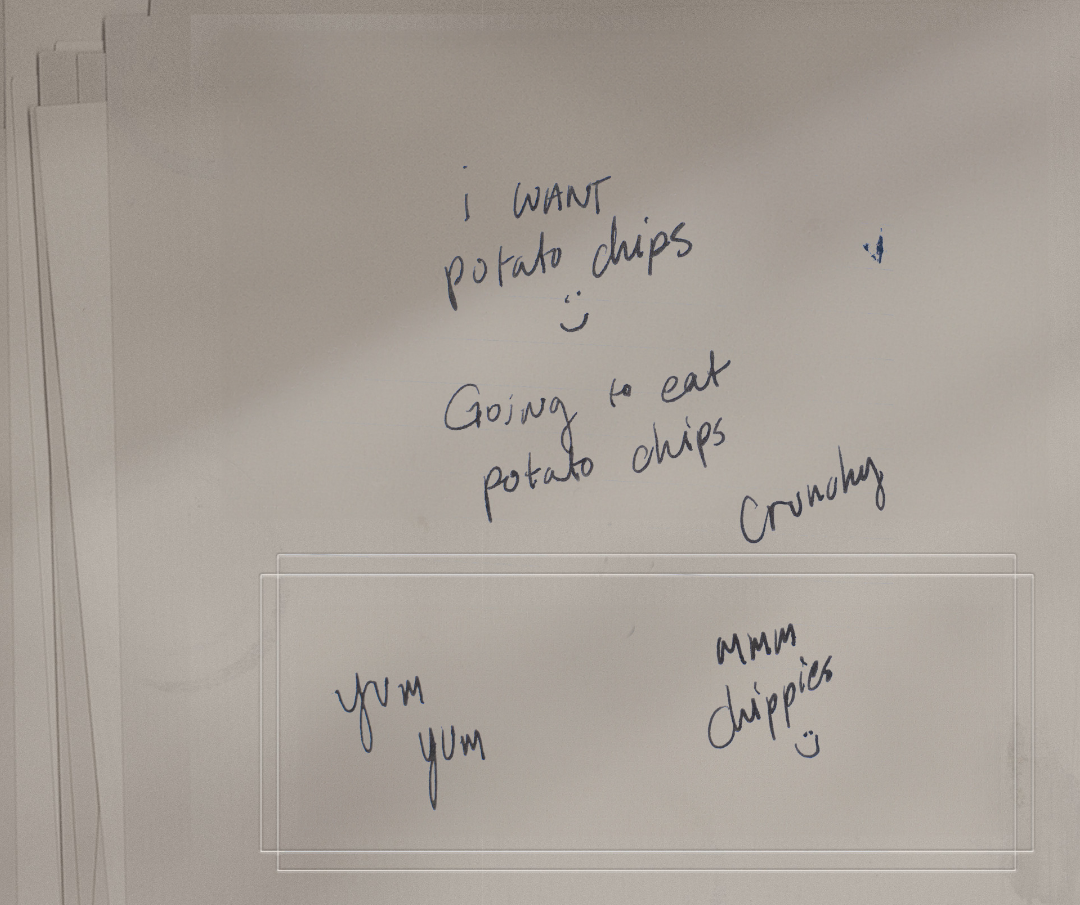 i WANT
potato chips
Going to eat
potato chips
Crunchy
yum
yum
mmm
chippies